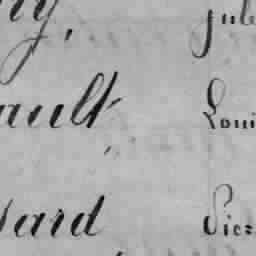 ny, jule
ault Loui
vard Pier